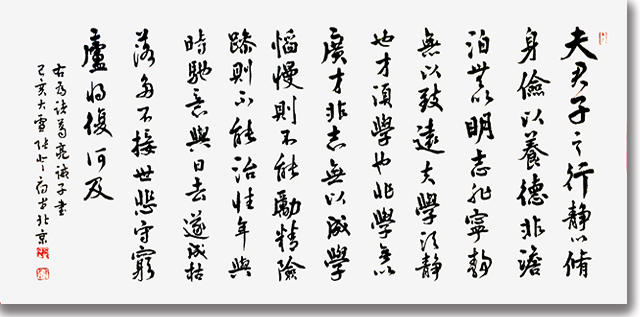 夫君子之行靜以脩
身儉以養德非澹
泊無以明志非寧靜
無以致遠夫學須靜
也才須學也非學無以
廣才非志無以成學
慆慢則不能勵精險
躁則不能治性年與
時馳意與日去遂成枯
落多不接世悲守窮
廬將復何及
右為諸葛亮誡子書
己亥大雪張北京